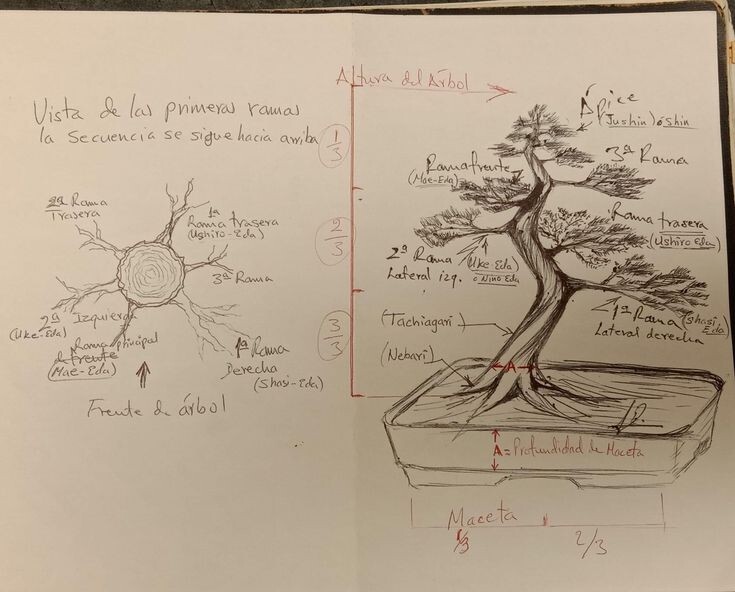 Vista de las primeras ramas
la secuencia se sigue hacia arriba
2ª Rama
Trasera
1ª
Rama trasera
(Ushiro-Eda)
3ª Rama
2ª Izquierda
(Uke-Eda)
Rama principal
de frente
(Mae-Eda)
1ª Rama
Derecha
(Shasi-Eda)
Frente de árbol
Altura del Árbol
1/3
2/3
3/3
Ápice
(Jushin) óshin
Rama frente
(Mae-Eda)
3ª Rama
Rama trasera
(Ushiro Eda)
2ª Rama
Lateral izq.
(Uke-Eda)
ó Nino Eda
1ª Rama (Shasi Eda)
Lateral derecha
(Tachiagari)
(Nebari)
A
A = Profundidad de Maceta
Maceta
1/3
2/3